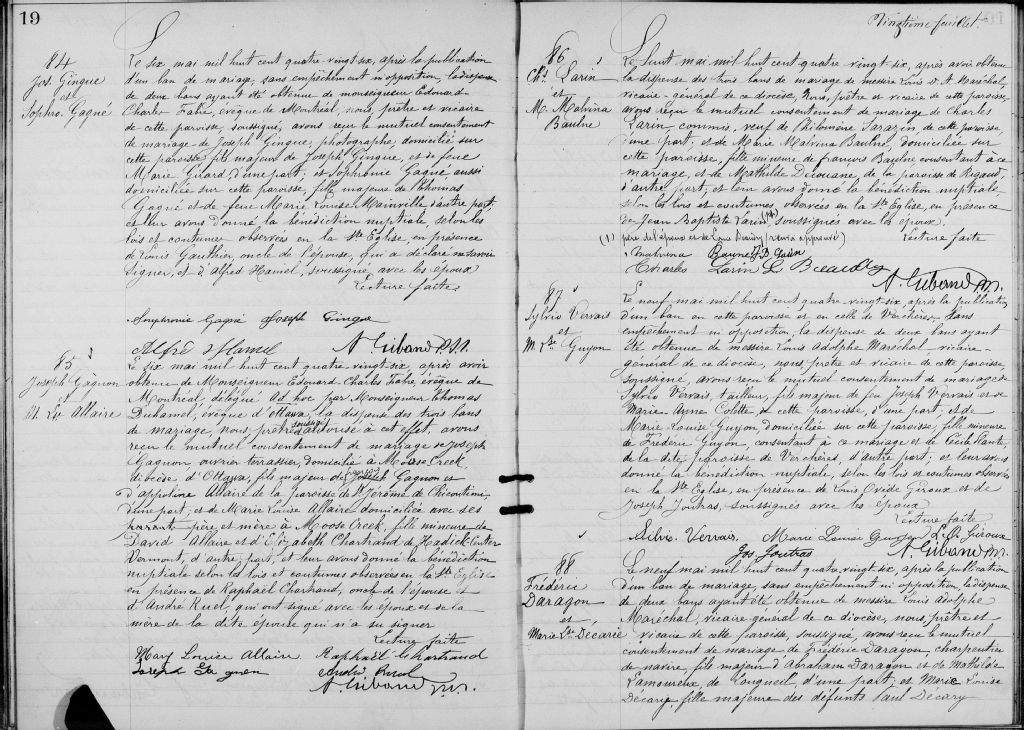 19
84
Jos. Gingue
et
Sophro. Gagné
Le six mai mil huit cent quatre vingt six, après la publication
d'un ban de mariage, sans empêchement ni opposition, la dispense
de deux bans ayant été obtenue de monseigneur Edouard
Charles Fabre, évêque de Montréal, nous, prêtre et vicaire
de cette paroisse, soussigné, avons reçu le mutuel consentement
de mariage de Joseph Gingue, photographe, domicilié sur
cette paroisse fils majeur de Joseph Gingue, et de feue
Marie Gilard d'une part; et Sophronie Gagné aussi
domiciliée sur cette paroisse, fille majeure de Thomas
Gagné et de feue Marie Louise Mainville d'autre part,
et leur avons donné la bénédiction nuptiale, selon les
lois et coutumes observées en la Ste Eglise, en présence
de Louis Gauthier, oncle de l'épouse, qui a déclaré ne savoir
signer, et d'Alfred Hamel, soussigné, avec les époux
Lecture faite
Sophronie Gagné Joseph Gingue
Alfred Hamel A. Giband P.S.S.
85
Joseph Gagnon
et
M. Lse Allaire
Le six mai mil huit cent quatre vingt six, après avoir
obtenue de Monseigneur Edouard Charles Fabre, évêque de
Montréal, délégué ad hoc par Monseigneur Thomas
Duhamel, évêque d'Ottawa, la dispense des trois bans
de mariage, nous, prêtre soussigné autorisé à cet effet, avons
reçu le mutuel consentement de mariage de Joseph
Gagnon, ouvrier terrassier, domicilié à Moose Creek,
diocèse d'Ottawa, fils majeur de Joseph Gagnon et
d'Appoline Allaire de la paroisse de St Jérôme de Chicoutimi,
d'une part; et de Marie Louise Allaire domiciliée avec ses
père et mère à Moose Creek, fille mineure de
David Allaire et d'Elizabeth Chartrand de Hadick Center
Vermont, d'autre part, et leur avons donné la bénédiction
nuptiale selon les lois et coutumes observées en la Ste Eglise
en présence de Raphaël Chartrand, oncle de l'épouse et
d'André Ruel, qui ont signé avec les époux et de la
mère de la dite épouse qui n'a su signer
Lecture faite
Mary Louise Allaire Raphaël Chartrand
Joseph Gagnon André Ruel
A. Giband P.S.S.
Vingtième feuillet.
86
Chs Larin
et
Mie Malvina
Baulne
Le huit mai mil huit cent quatre vingt six, après avoir obtenu
la dispense des trois bans de mariage de messire Louis D. A. Maréchal,
vicaire-général de ce diocèse, nous, prêtre et vicaire de cette paroisse,
avons reçu le mutuel consentement de mariage de Charles
Larin, commis, veuf de Philomène Sarazin, de cette paroisse,
d'une part; et de Marie Malvina Baulne, domiciliée sur
cette paroisse, fille mineure de françois Baulne consentant à ce
mariage, et de Mathilde Découane, de la paroisse de Rigaud,
d'autre part, et leur avons donné la bénédiction nuptiale
selon les lois et coutumes, observées en la Ste Eglise, en présence
de Jean Baptiste Larin (1) soussignés avec les époux.
(1) père de l'époux et de Louis Beaudry (renvoi approuvé) Lecture faite
Malvina Baune J. B. Larin
Charles Larin L. Beaudry
A. Giband P.S.S.
87
Sylvio Vervais
et
M. Lse Guyon
Le neuf mai mil huit cent quatre-vingt six, après la publication
d'un ban en cette paroisse et en celle de Verchères, sans
empêchement ni opposition, la dispense de deux bans ayant
été obtenue de messire Louis Adolphe Maréchal vicaire-
général de ce diocèse, nous prêtre et vicaire de cette paroisse,
soussigné, avons reçu le mutuel consentement de mariage de
Sylvio Vervais, tailleur, fils majeur de feu Joseph Vervais et de
Marie Anne Colette, de cette paroisse, d'une part, et de
Marie Louise Guyon domiciliée sur cette paroisse, fille mineure
de Fréderic Guyon, consentant à ce mariage et de Cécile Plante,
de la dite paroisse de Verchères, d'autre part; et leur avons
donné la bénédiction nuptiale, selon les lois et coutumes observées
en la Ste Eglise, en présence de Louis Ovide Giroux et de
Joseph Joutras, soussignés avec les époux
Lecture faite
Silvio Vervais. Marie Louise Guyon L. O. Giroux
Jos Joutras A. Giband P.S.S.
88
Fréderic
Daragon
et
Marie Lse Decarie
Le neuf mai mil huit cent quatre vingt six, après la publication
d'un ban de mariage, sans empêchement ni opposition, la dispense
de deux bans ayant été obtenue de messire Louis Adolphe
Maréchal, vicaire général de ce diocèse, nous, prêtre et
vicaire de cette paroisse, soussigné, avons reçu le mutuel
consentement de mariage de Fréderic Daragon, charpentier
de navire, fils majeur d'Abraham Daragon et de Mathilde
Lamoureux, de Longueil, d'une part; et Marie Louise
Décary, fille majeure des défunts Paul Décary